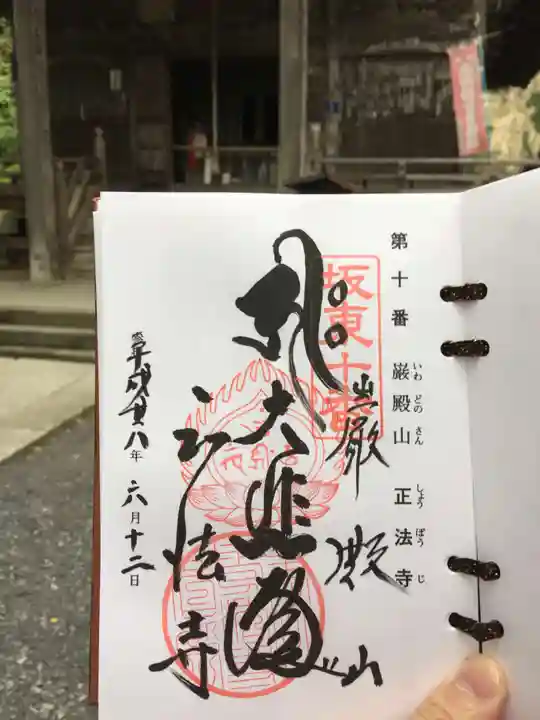 第十番 巌殿山 正法寺
いわ どの さん しょう ぼう じ
坂東十番
巌殿山
大悲閣
正法寺
奉拝 平成廿八年 六月十二日